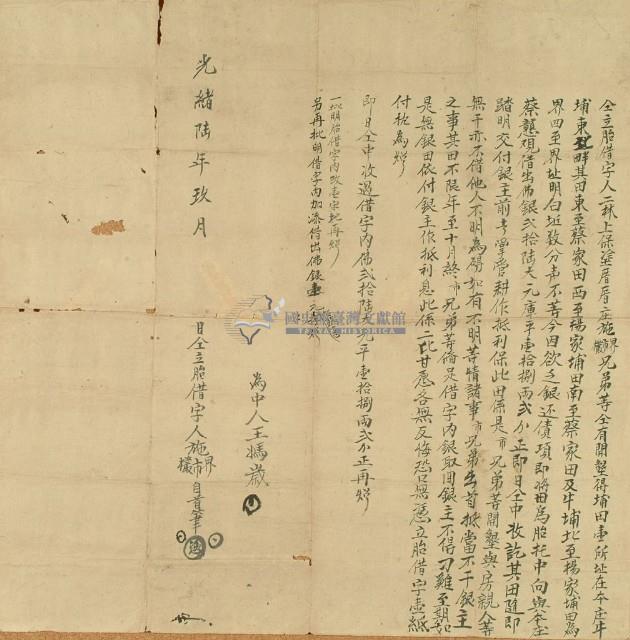 仝立胎借字人二林上保塗厝厝庄施界市欉兄弟等仝有開墾得埔田壹所址在本庄牛
埔東至畔其田東至蔡家田西至楊家埔田南至蔡家田及牛埔北至楊家埔田為
界四至界址明白坵数分声不等今因欲乏銀还債項即將田為胎托中向與本庄
蔡觀借出佛銀弍拾陸大元庫平壹拾捌兩弍分正即日仝中收訖其田隨即
踏明交付銀主前去掌管耕作抵利保此田係是市兄弟等開墾與房親人等
無干亦不借他人不明為碍如有不明等情諸事市兄弟出首抵當不干銀主
之事其田不限年至十月終市兄弟等偹足借字內銀取回銀主不得刁難至期如
是無銀田依付銀主作抵利息此係二比甘愿各無反悔恐口無憑立胎借字壹紙
付执為炤
即日仝中收过借字內佛弍拾陸元平壹拾捌兩弍分正再炤
一批明胎借字內改壹字批再炤
另再批明借字內加添借出佛銀壹元炤
為中人王媽歲
光緒陸年玖月 日仝立胎借字人施界市欉自書筆
國史館臺灣文獻館
TAIWAN HISTORICA